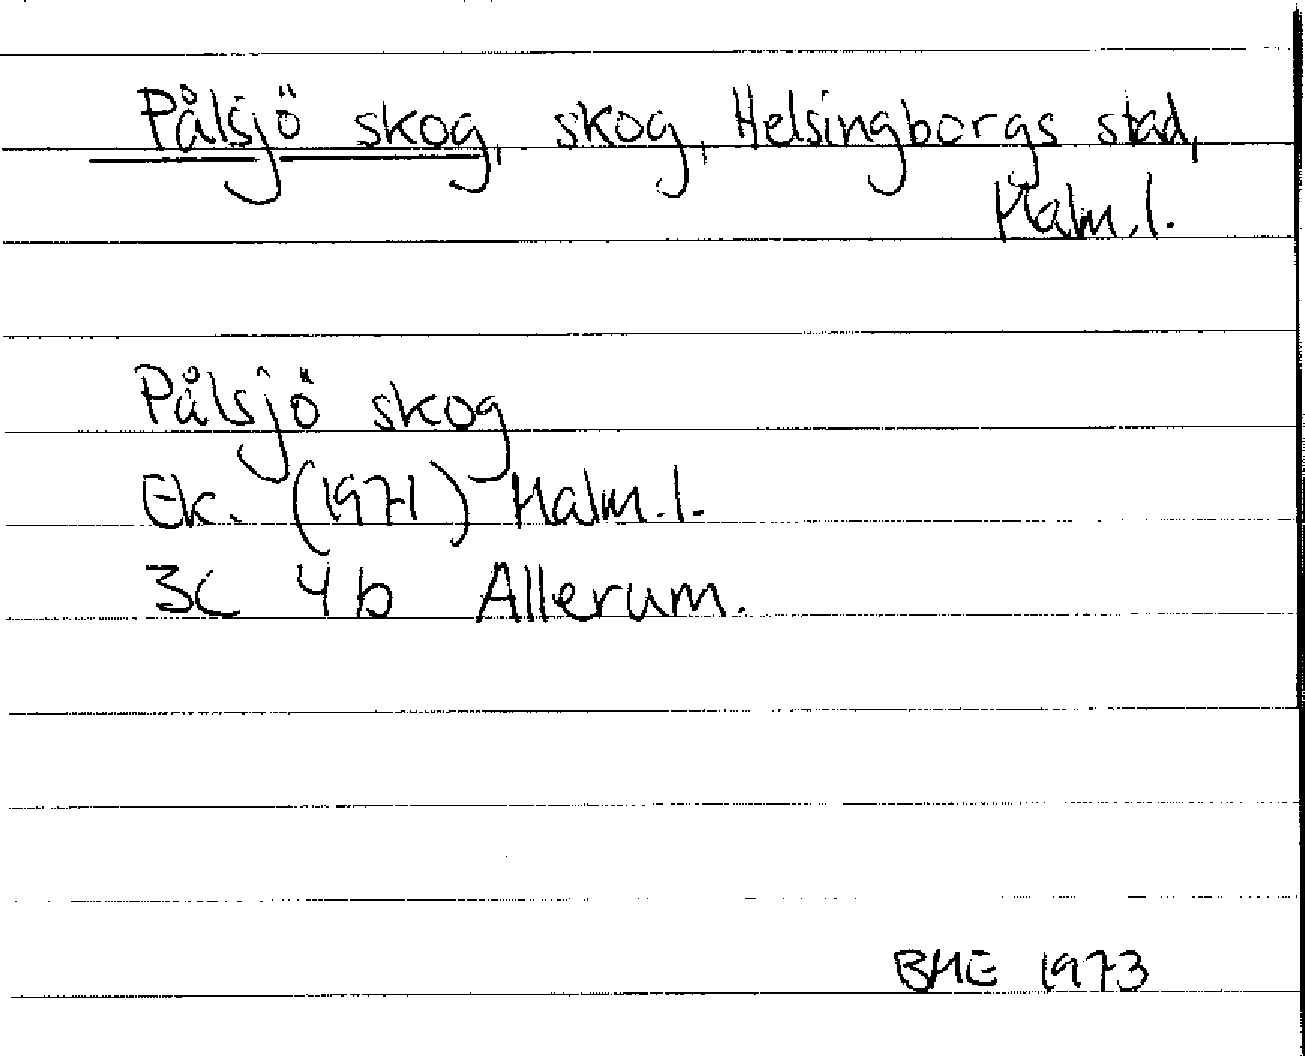 Pålsjö skog, skog, Helsingborgs stad,
Malm.l.
Pålsjö skog
Ek. (1971) Malm.l.
3C 4b Allerum.
BME 1973